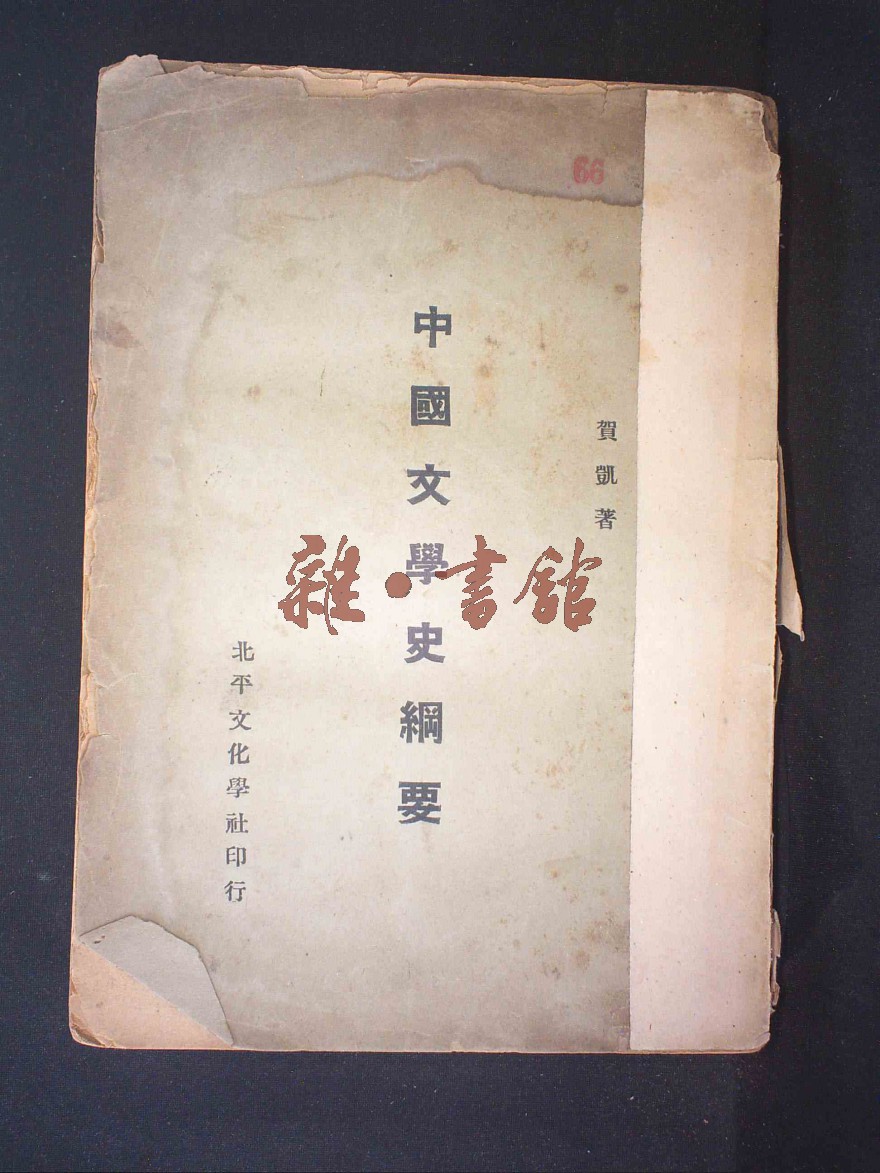 66
賀凱著
中國文學史綱要
北平文化學社印行
雜·書館